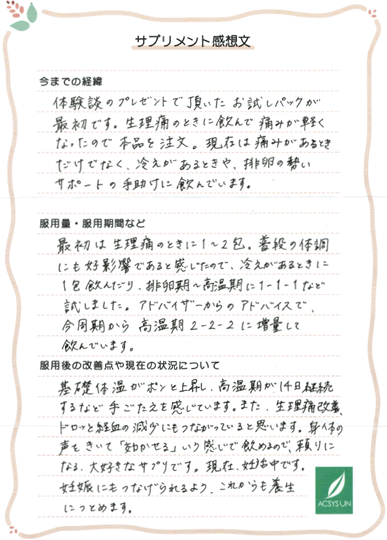 サプリメント感想文
今までの経緯
体験談のプレゼントで頂いたお試しパックが
最初です。生理痛のときに飲んで痛みが軽く
なったので本品を注文。現在は痛みがあるとき
だけでなく、冷えがあるときや、排卵の勢い
サポートの手助けに飲んでいます。
服用量・服用期間など
最初は生理痛のときに1～2包。普段の体調
にも好影響であると感じたので、冷えがあるときに
1包飲んだり、排卵期～高温期に1-1-1など
試しました。アドバイザーからのアドバイスで、
今周期から高温期2-2-2に増量して
飲んでいます。
服用後の改善点や現在の状況について
基礎体温がポンと上昇し、高温期が14日継続
するなど手ごたえを感じています。また、生理痛改善、
ドロッと経血の減少にもつながっていると思います。身体の
声をきいて「効かせる」いう感じで飲めるので、頼りに
なる、大好きなサプリです。現在、妊活中です。
妊娠にもつなげられるよう、これからも養生
につとめます。
ACSYSUN